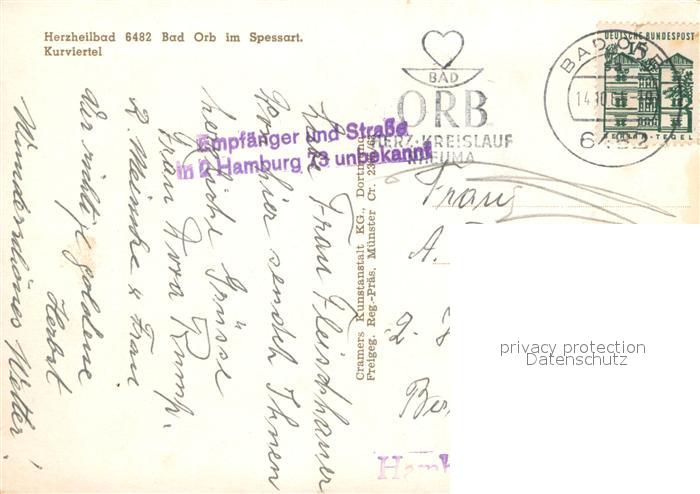 Herzheilbad 6482 Bad Orb im Spessart.
Kurviertel
DEUTSCHE BUNDESPOST
15
BERLIN-TEGEL
BAD ORB
14.10.6
6482
BAD
ORB
HERZ-KREISLAUF
RHEUMA
Empfänger und Straße
in 2 Hamburg 73 unbekannt
Cramers Kunstanstalt KG., Dortmund
Freigeg. Reg.-Präs. Münster Cr.
Liebe Frau Fleischhauer
von hier sendet Ihnen
herzliche Grüsse
Frau Dora Rump.
R. Meincke u. Frau
der richtige goldene
Herbst
Wunderschönes Wetter!
Frau
A.
2.
Be
Hamb
privacy protection
Datenschutz